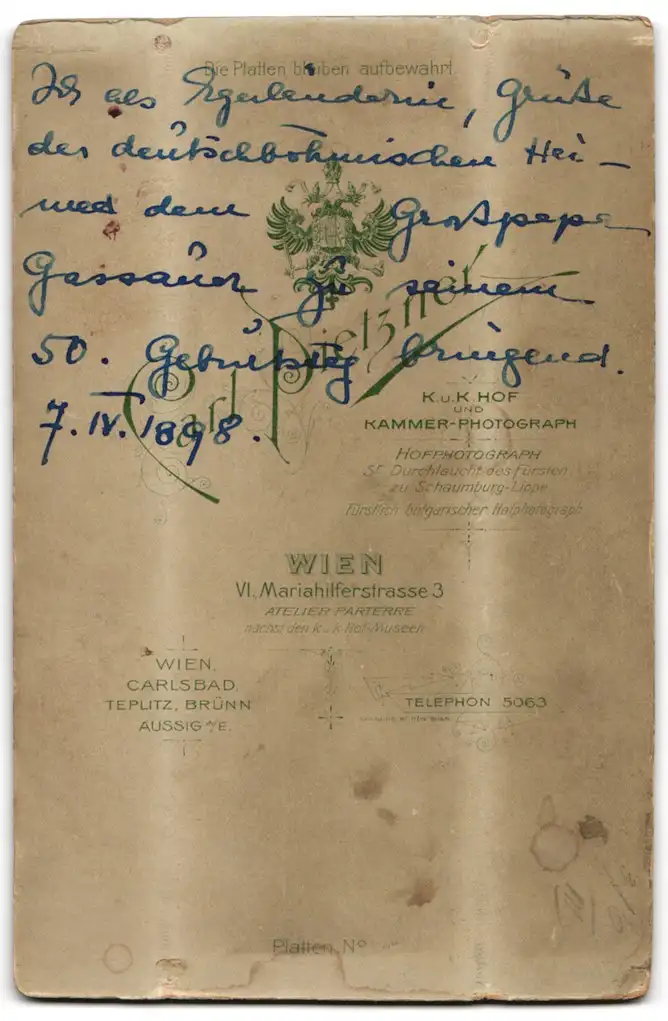 Die Platten bleiben aufbewahrt.
Ich als Egerländerin, Grüße
der deutschböhmischen Hei-
mat dem Großpapa
Gassauer zu seinem
50. Geburtstag bringend.
7. IV. 1898.
Carl Pietzner
K.u.K. HOF
UND
KAMMER-PHOTOGRAPH
HOFPHOTOGRAPH
Sr Durchlaucht des Fürsten
zu Schaumburg-Lippe
Fürstlich bulgarischer Hofphotograph
WIEN
VI. Mariahilferstrasse 3
ATELIER PARTERRE
nächst den k.u.k. Hof-Museen
WIEN,
CARLSBAD,
TEPLITZ, BRÜNN
AUSSIG a/E.
TELEPHON 5063
Platten No